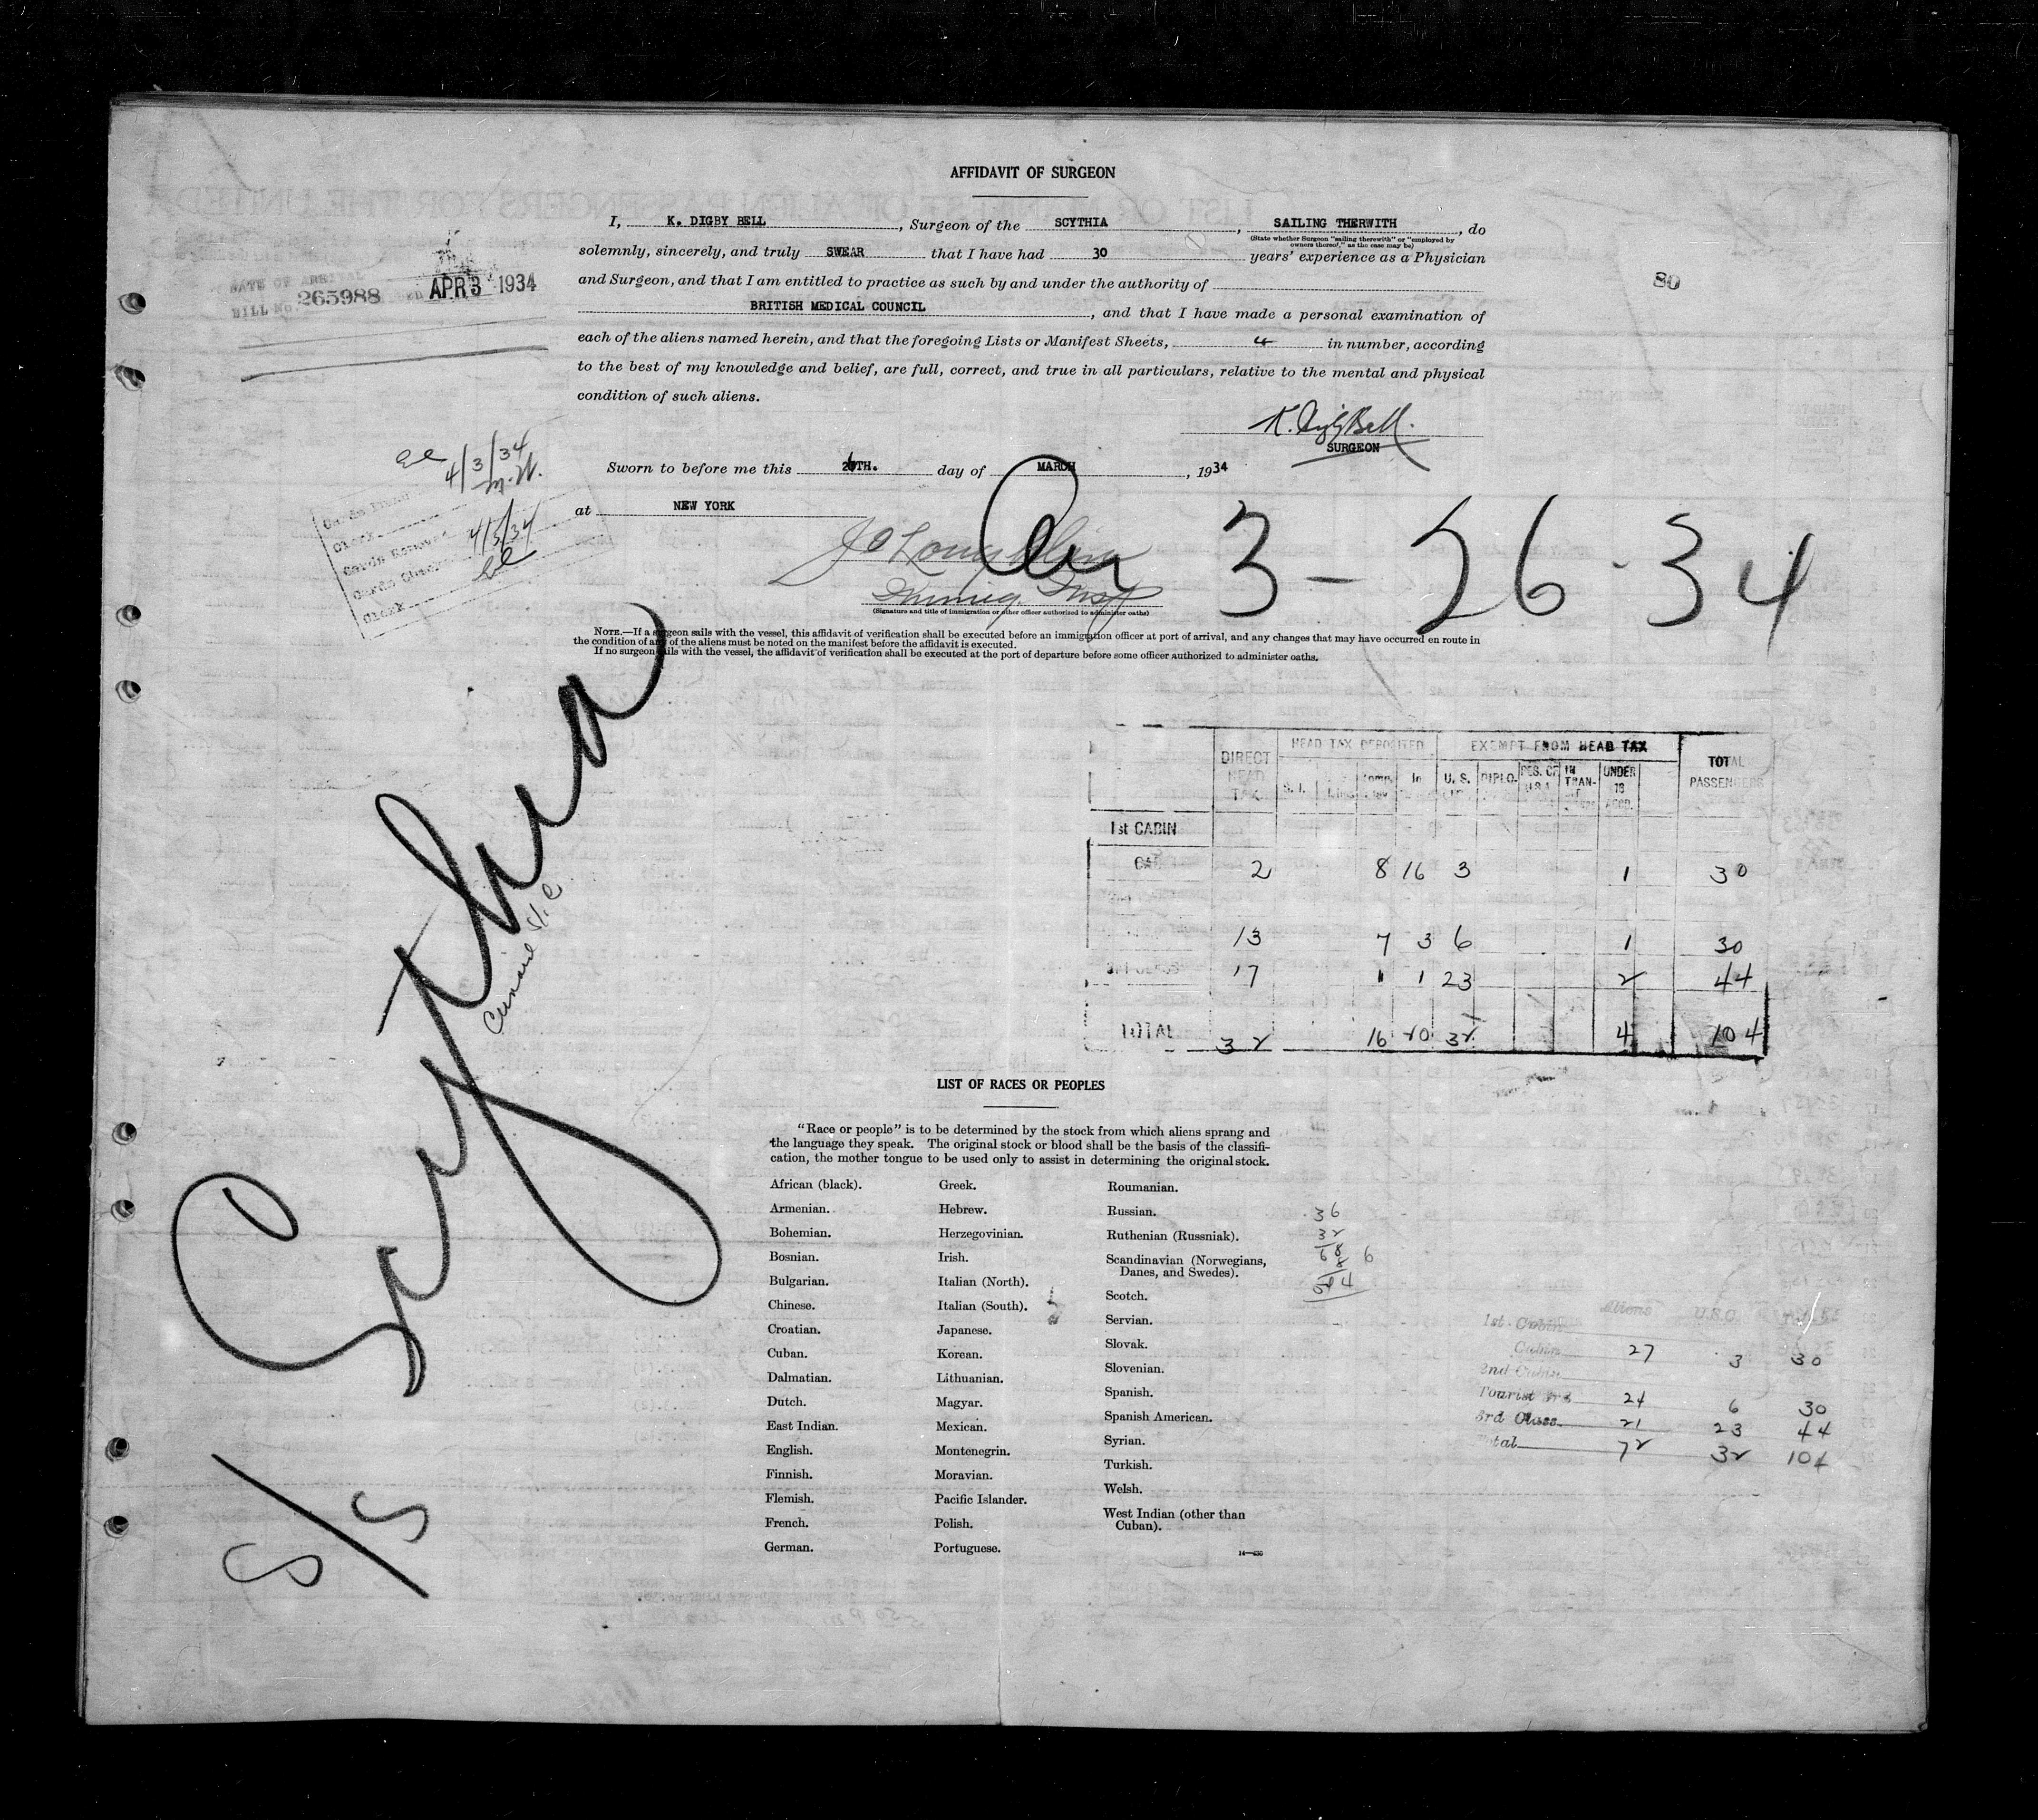 AFFIDAVIT OF SURGEON
I, K. DIGBY BELL, Surgeon of the SCYTHIA, SAILING THERWITH, do
(State whether Surgeon "sailing therewith" or "employed by
owners thereof," as the case may be)
solemnly, sincerely, and truly SWEAR that I have had 30 years' experience as a Physician
and Surgeon, and that I am entitled to practice as such by and under the authority of
BRITISH MEDICAL COUNCIL, and that I have made a personal examination of
each of the aliens named herein, and that the foregoing Lists or Manifest Sheets, 4 in number, according
to the best of my knowledge and belief, are full, correct, and true in all particulars, relative to the mental and physical
condition of such aliens.
80
BILL No. 265988 APR 3 1934
K. Digby Bell.
SURGEON
Sworn to before me this 26TH. day of MARCH, 1934
at NEW YORK
4/3/34
M.W.
Clerk
Cards Removed 4/3/34
Clerk
Immig. Insp
(Signature and title of immigration or other officer authorized to administer oaths)
Arr 3-26-34
NOTE.—If a surgeon sails with the vessel, this affidavit of verification shall be executed before an immigration officer at port of arrival, and any changes that may have occurred en route in
the condition of any of the aliens must be noted on the manifest before the affidavit is executed.
If no surgeon sails with the vessel, the affidavit of verification shall be executed at the port of departure before some officer authorized to administer oaths.
S/S Scythia
Cunard
DIRECT HEAD TAX HEAD TAX DEPOSITED EXEMPT FROM HEAD TAX TOTAL PASSENGERS
S. I. In U. S. DIPLO. RES. OF U.S.A. IN TRAN- UNDER 16
1st CABIN
CAB 2 8 16 3 1 30
13 7 3 6 1 30
17 1 1 23 2 44
TOTAL 32 16 20 32 4 104
LIST OF RACES OR PEOPLES
"Race or people" is to be determined by the stock from which aliens sprang and
the language they speak. The original stock or blood shall be the basis of the classifi-
cation, the mother tongue to be used only to assist in determining the original stock.
African (black).
Armenian.
Bohemian.
Bosnian.
Bulgarian.
Chinese.
Croatian.
Cuban.
Dalmatian.
Dutch.
East Indian.
English.
Finnish.
Flemish.
French.
German.
Greek.
Hebrew.
Herzegovinian.
Irish.
Italian (North).
Italian (South).
Japanese.
Korean.
Lithuanian.
Magyar.
Mexican.
Montenegrin.
Moravian.
Pacific Islander.
Polish.
Portuguese.
Roumanian.
Russian.
Ruthenian (Russniak).
Scandinavian (Norwegians,
Danes, and Swedes).
Scotch.
Servian.
Slovak.
Slovenian.
Spanish.
Spanish American.
Syrian.
Turkish.
Welsh.
West Indian (other than
Cuban).
36
32
68 6
Aliens U.S.C. Total
1st Cabin
Cabin 27 3 30
2nd Cabin
Tourist 3rd 24 6 30
3rd Class 21 23 44
Total 72 32 104